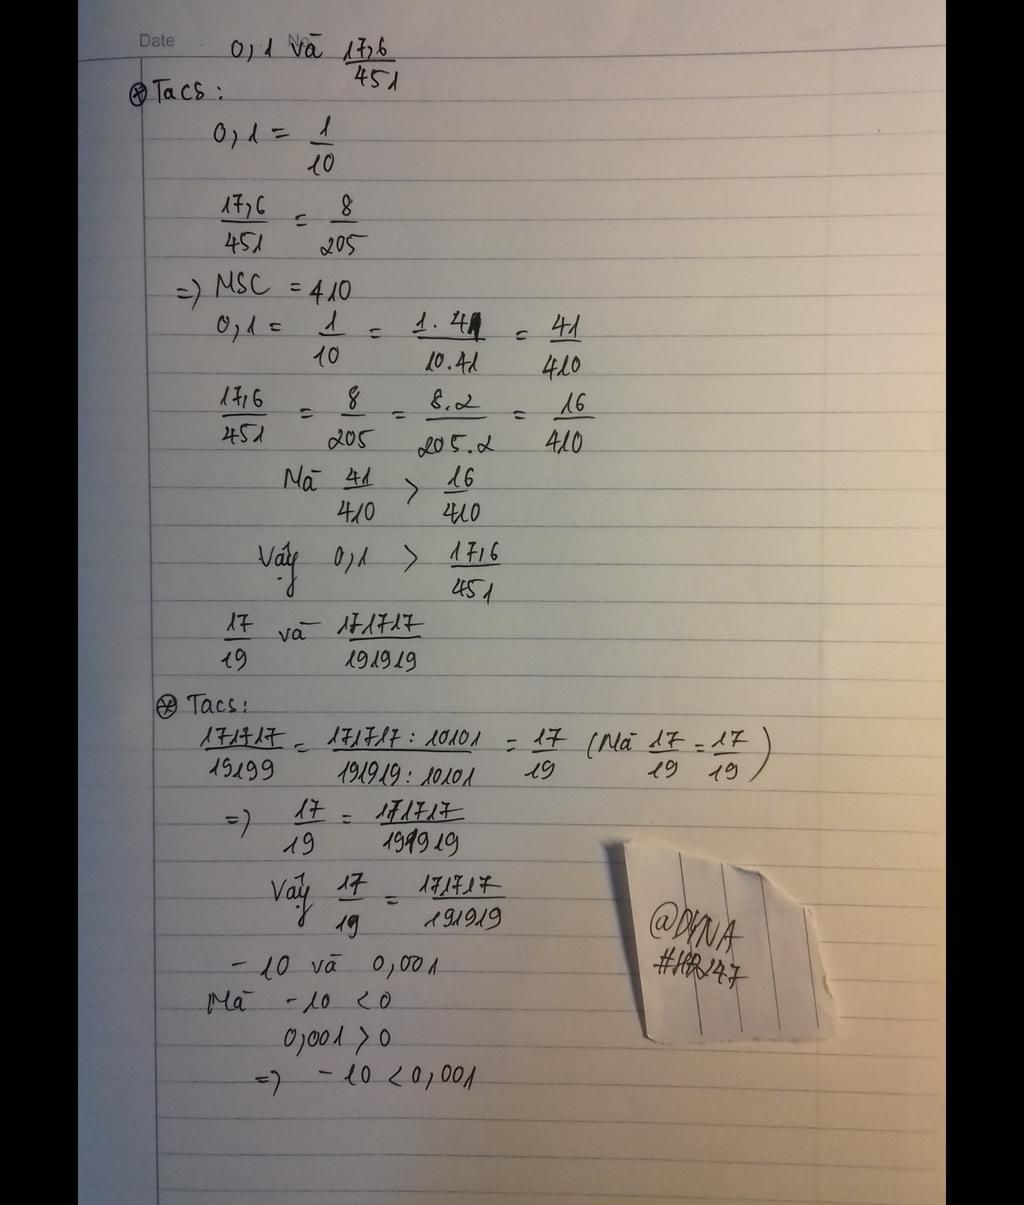 Date No.
0,1 và 17,6/451
⊛ Tacs:
0,1 = 1/10
17,6/451 = 8/205
=) MSC = 410
0,1 = 1/10 = 1.41/10.41 = 41/410
17,6/451 = 8/205 = 8.2/205.2 = 16/410
Mà 41/410 > 16/410
Vậy 0,1 > 17,6/451
17/19 và 171717/191919
⊛ Tacs:
171717/19199 = 171717:10101/191919:10101 = 17/19 (Mà 17/19 = 17/19)
=) 17/19 = 171717/191919
Vậy 17/19 = 171717/191919
-10 và 0,001
Mà -10 < 0
0,001 > 0
=) -10 < 0,001
@DYNA